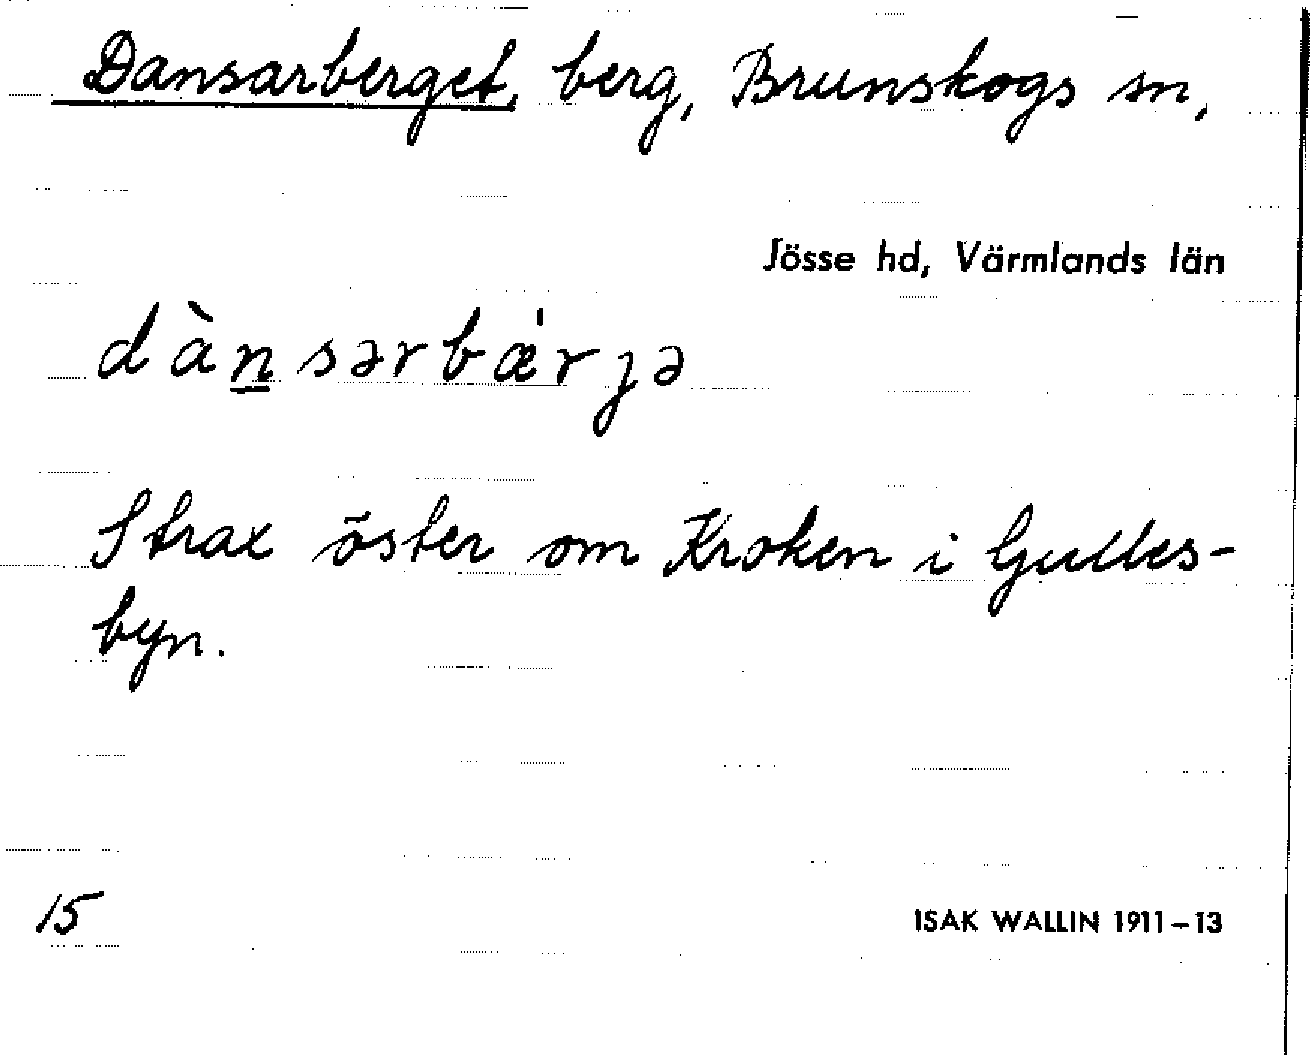 Dansarberget, berg, Brunskogs sn,
Jösse hd, Värmlands län
dànsərbæ̍rjə
Strax öster om Kroken i Gulles-
byn.
15
ISAK WALLIN 1911–13